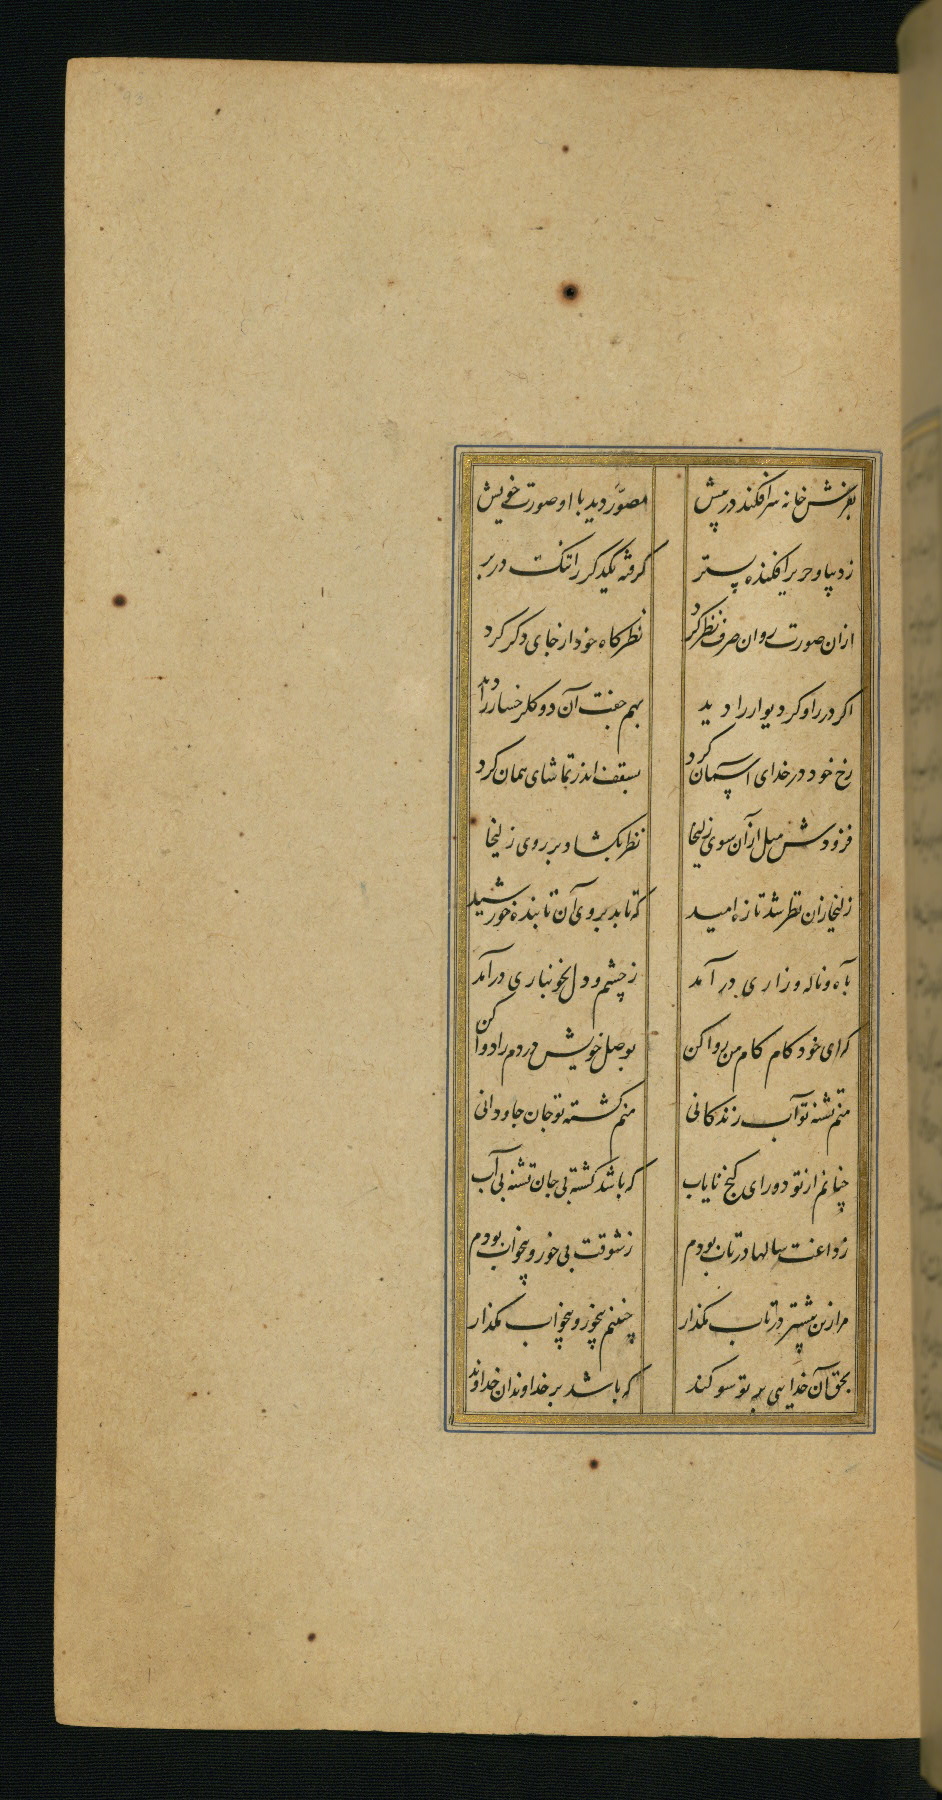 بفرش خانه سر افکند در پیش مصوّر دید با او صورت خویش
ز دیبا و حریر افکنده بستر گرفته یکدگر را تنگ در بر
ازان صورت روان صرف نظر کرد نظرگاه خود از جای دگر کرد
اگر در را و گر دیوار را دید بهم جفت آن دو گلرخسار را دید
رخ خود در خدای آسمان کرد بسقف اندر تماشای همان کرد
فزودش میل ازآن سوی زلیخا نظر بگشاد بر روی زلیخا
زلیخا زان نظر شد تازه امید که تابد بروی آن تابنده خورشید
بآه و ناله و زاری در آمد ز چشم و دل بخونباری درآمد
که ای خود کام کام من روا کن بوصل خویش دردم را دوا کن
منم تشنه تو آب زندگانی منم کشته تو جان جاودانی
چنانم از تو دور ای گنج نایاب که باشد کشته بی جان تشنه بی آب
ز داغت سالها در تاب بودم ز شوقت بی خور و بیخواب بودم
مرا زین بیشتر در تاب مگذار چنینم بیخور و بیخواب مگذار
بحق آن خدایی بر تو سوگند که باشد بر خداوندان خداوند